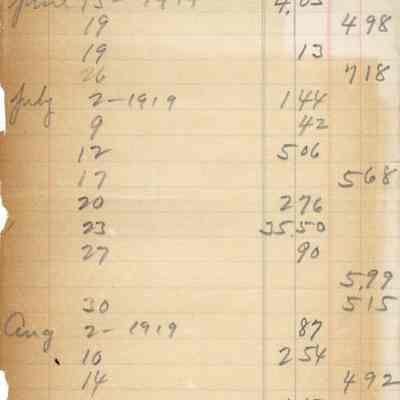 June 13 - 1919 4,05
19 498
19 13
26 718
July 2-1919 144
9 42
12 506
17 568
20 276
23 35.50
27 90
5,99
30 515
Aug 2- 1919 87
10 254
14 492